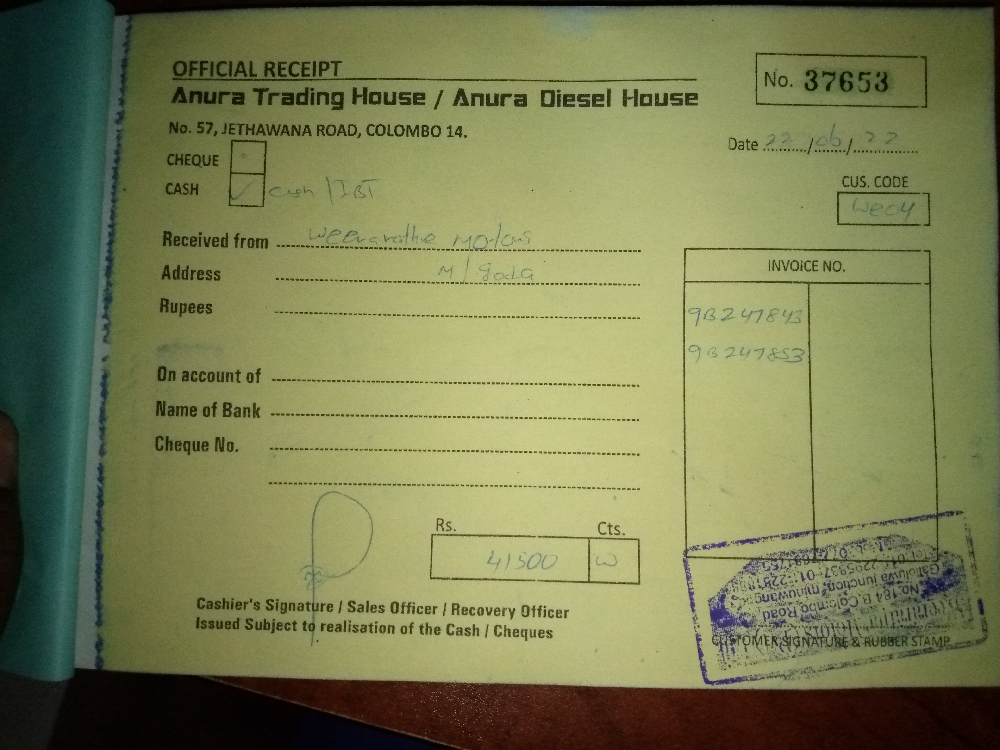 OFFICIAL RECEIPT
No. 37653
Anura Trading House / Anura Diesel House
No. 57, JETHAWANA ROAD, COLOMBO 14.
Date 22/06/22
CHEQUE
CASH ✓ Cash / IBT
CUS. CODE
WE04
Received from
Address M/goda
Rupees
INVOICE NO.
9B247843
9B247853
On account of
Name of Bank
Cheque No.
Rs. Cts.
41500
Cashier's Signature / Sales Officer / Recovery Officer
Issued Subject to realisation of the Cash / Cheques
No. 184 B, Colombo Road
CUSTOMER SIGNATURE & RUBBER STAMP